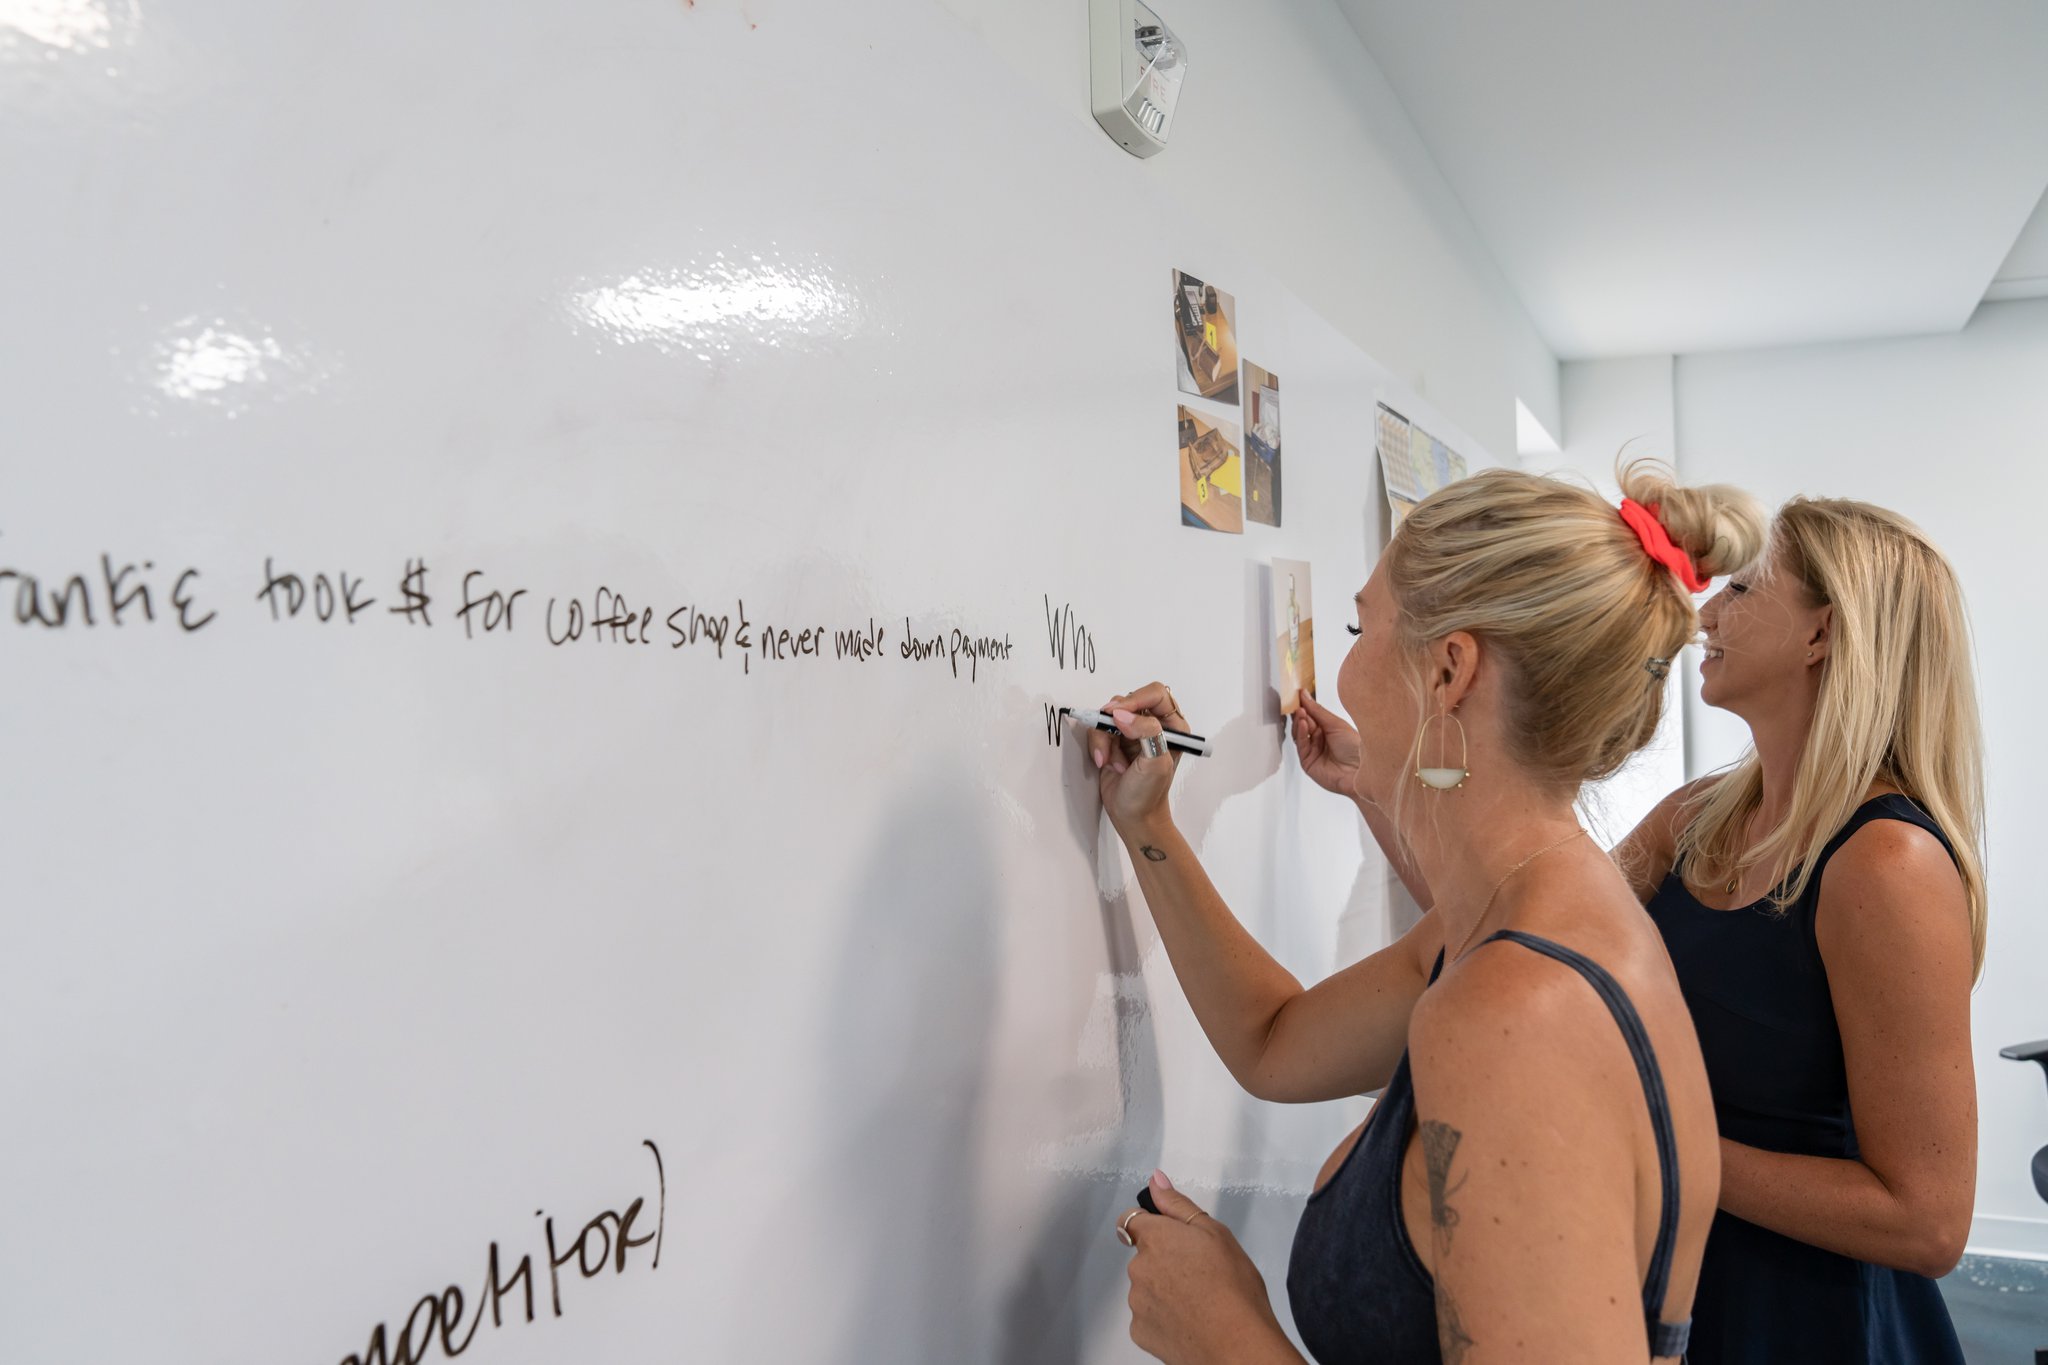 rankie took $ for coffee shop & never made down payment
Who
W
mpetitor)
1
3